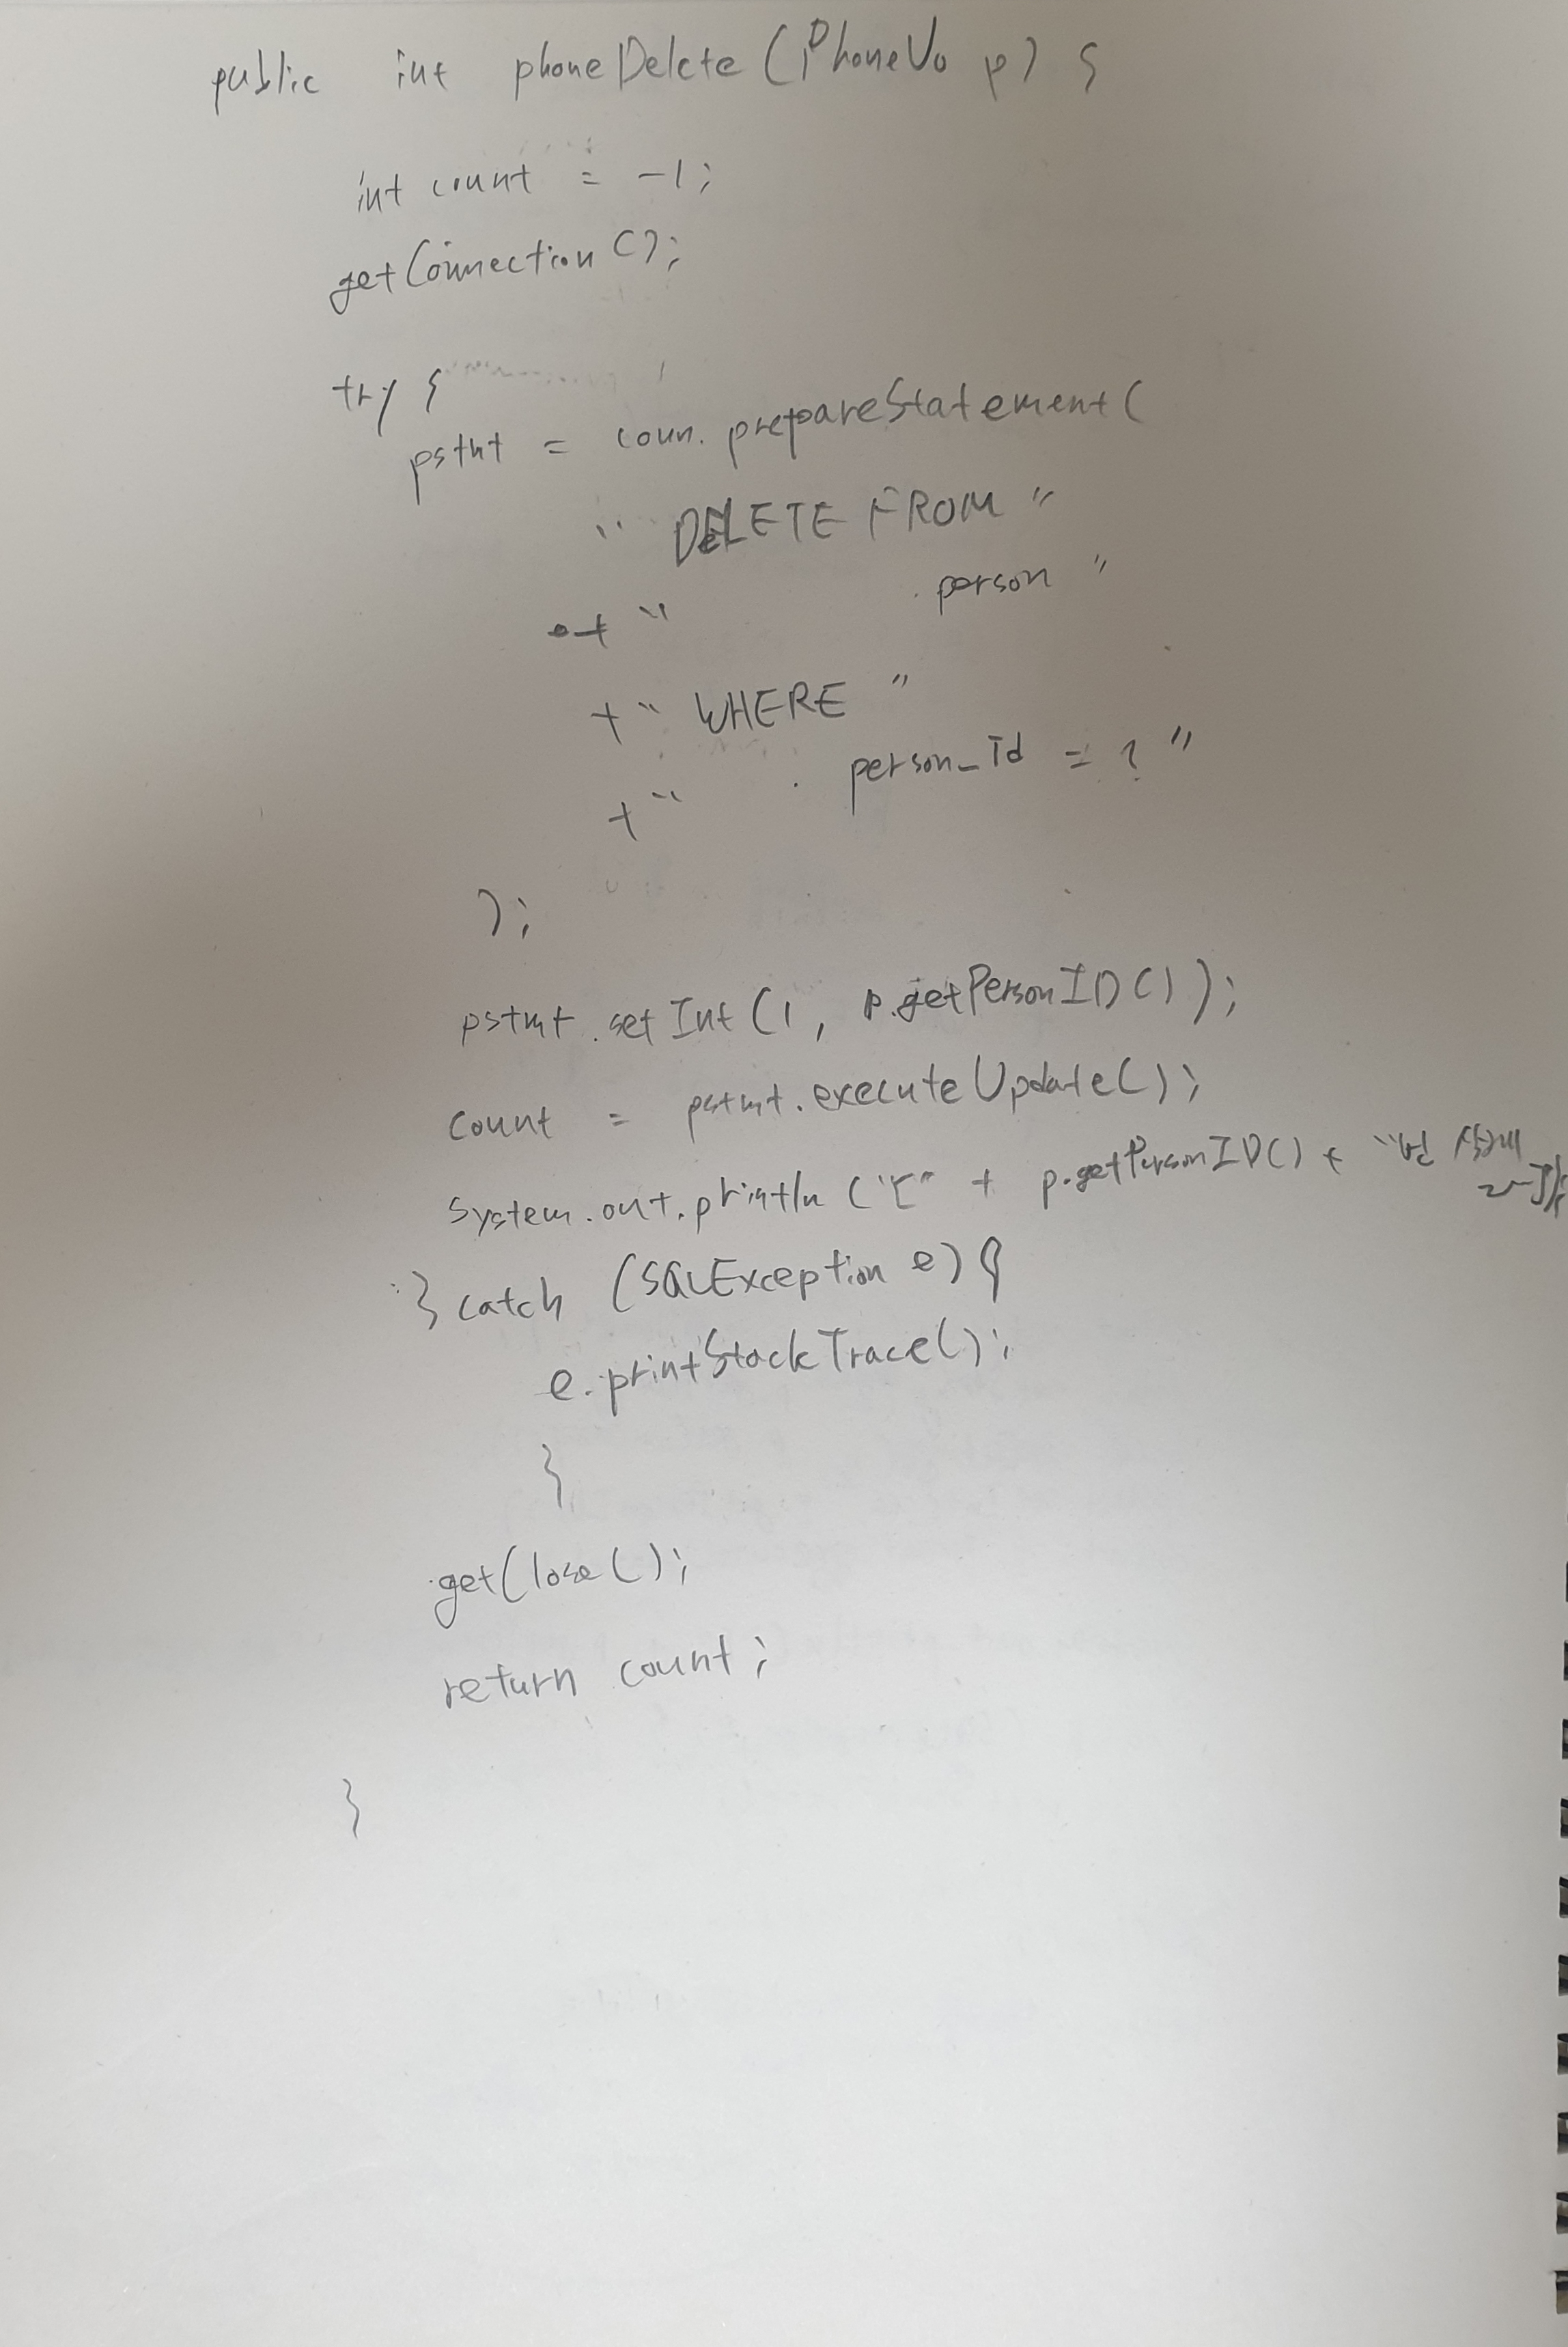 public int phoneDelete (PhoneVo p) {
int count = -1;
getConnection ();
try {
pstmt = conn. prepareStatement (
" DELETE FROM "
+ " person "
+ " WHERE "
+ " person_Id = ? "
);
pstmt.setInt (1, p.getPersonID());
count = pstmt.executeUpdate();
System.out.println ("[" + p.getPersonID() + "번 삭제
} catch (SQLException e) {
e.printStackTrace();
}
getClose();
return count;
}